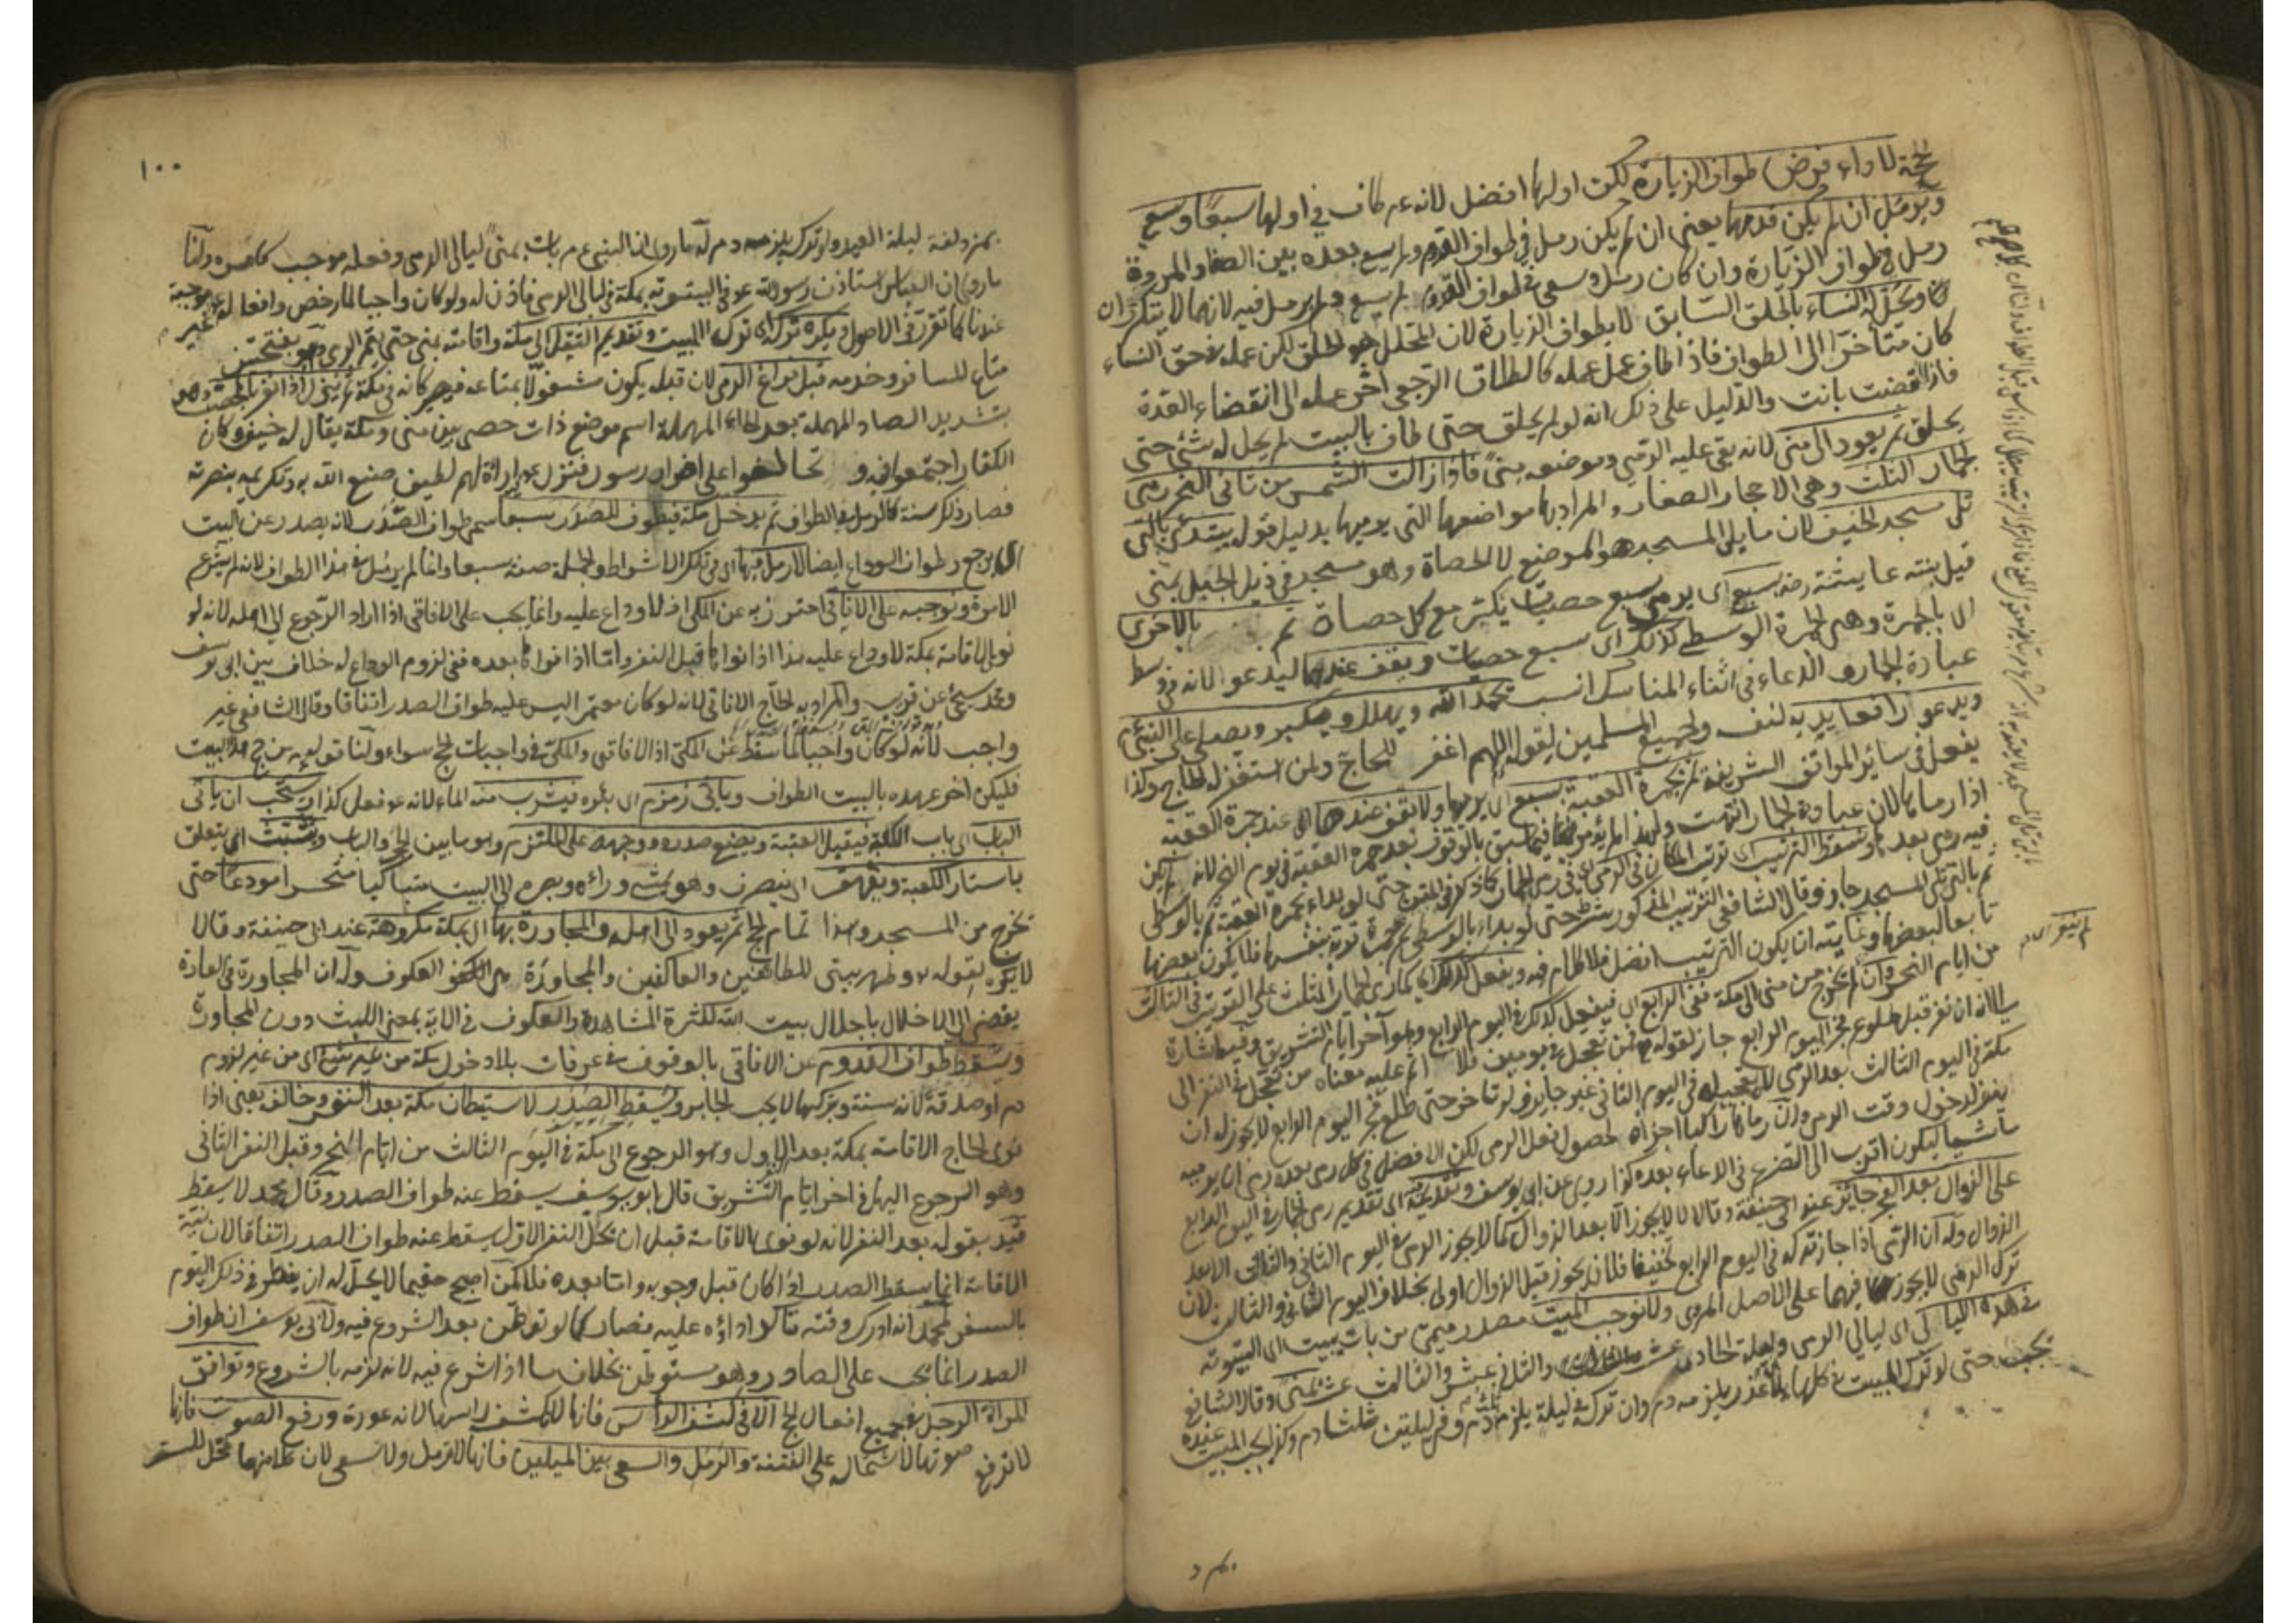 لحجة لاداء فرض طواف الزيارة لكن اولها افضل لانه عم طاف في اولها سبعا وسع
ويرمل ان لم يكن قدمها يعني ان لم يكن رمل في طواف القدوم ولم يسع بعده بين الصفا والمروة
رمل في طواف الزيارة وان كان رمل وسعى في طواف القدوم لم يسع ولم يرمل فيه لانهما لا يتكرران
ويحل له النساء بالحلق السابق لا بطواف الزيارة لان المحلل هو الحلق لكن عمله في حق النساء
كان متأخرا الى الطواف فاذا طاف عمل عمله كالطلاق الرجعي اخر عمله الى انقضاء العدة
فاذا انقضت بانت والدليل على ذلك انه لو لم يحلق حتى طاف بالبيت لم يحل له شئ حتى
يحلق ثم يعود الى منى لانه بقي عليه الرمي وموضعه بمنى فاذا زالت الشمس من ثاني النحر رمى
لجمار الثلث وهي الاحجار الصغار والمراد بها مواضعها التي يرميها بدليل قوله يبتدئ بالتي
تلي مسجد الخيف لان ما يلي المسجد هو الموضع لا الحصاة وهو مسجد في ذيل الجبل بمنى
قيل بنته عايشة رضه بسبع اى يرمي سبع حصيات يكبر مع كل حصاة ثم بالاخرى
الا بالجمرة وهي الجمرة الوسطى كذلك اى سبع حصيات ويقف عندهما ليدعو لانه في وسط
عبادة الجمار والدعاء في اثناء المناسك انسب تحمد الله ويهلل ويكبر ويصلي على النبي
ويدعو رافعا يديه لنفسه ولجميع المسلمين لقوله اللهم اغفر للحاج ولمن استغفر له الحاج وكذا
يفعل في سائر المواقف الشريفة ثم بجمرة العقبة بسبع اى يرميها ولا يقف عندها اى عند جمرة العقبة
اذا رماها لان عبادة الجمار انتهت ولهذا لم يؤمر فيما سبق بالوقوف بعد جمرة العقبة في يوم النحر لانه لم يكن
فيه رمي بعد وسقط الترتيب اى ترتيب المكان في الرمي اى في رمي الجمار كما ذكر في المتن حتى لو بداء بجمرة العقبة ثم بالوسطى
ثم بالتي تلي المسجد جاز وقال الشافعي الترتيب المذكور شرط حتى لو بداء بالوسطى جمرة قربة بنفسها فلا يكون بعضها
تابعا لبعضها وغايته ان يكون الترتيب افضل فلا كلام فيه ويفعل كذلك اى كما رمى الجمار الثلث على الترتيب في الثالث
من ايام النحر وان لم يخرج من منى الى مكة ففي الرابع اى فيفعل كذلك في اليوم الرابع وهو آخر ايام التشريق وفيه اشارة
الى انه ان نفر قبل طلوع فجر اليوم الرابع جاز لقوله فمن تعجل في يومين فلا اثم عليه معناه من تعجل في النفر الى
مكة في اليوم الثالث بعد الرمي في اليوم الثاني غير جايز ولو تأخر حتى طلع فجر اليوم الرابع لا يجوز له ان
ينفر لدخول وقت الرمي وان رماها راكبا اجزاه لحصول فعل الرمي لكن الافضل في كل رمي بعده رمي ان يرميه
ماشيا ليكون اقرب الى التضرع في الدعاء بعده كذا روي عن ابي يوسف وتقديمه اى تقديم رمي الجمار في اليوم الرابع
على الزوال بعد الفجر جائز عند ابي حنيفة وقالا لا يجوز الا بعد الزوال كما لا يجوز الرمي في اليوم الثاني والثالث الا بعد
الزوال وله ان الرمي اذا جاز تركه في اليوم الرابع تخفيفا فلان يجوز قبل الزوال اولى بخلاف اليوم الثاني والثالث لان
ترك الرمي لا يجوز فيهما على الاصل المروي ولا نوجب المبيت مصدر ميمي من بات يبيت اى البيتوتة
في هذه الليالي اى ليالي الرمي وليلة الحادي عشر والثاني عشر والثالث عشر بمنى وقال الشافعي
تجب حتى لو ترك المبيت في كلها بلا عذر يلزمه دم وان ترك في ليلة يلزم ثلث دم وفي ليلتين ثلثا دم وكذا يجب المبيت عنده
بمزد
١٠٠
بمزدلفة ليلة العيد ولو تركه يلزمه دم له ما روي ان النبي عم بات بمنى ليالي الرمي وفعله موجب كامره ولنا
ما روي ان العباس استأذن رسول الله عم في البيتوتة بمكة في ليالي الرمي فاذن له ولو كان واجبا لما رخص وافعاله غير موجبة
عندنا كما تقرر في الاصول ويكره تركه اى ترك المبيت وتقديم الثقل الى مكة واقامته بمنى حتى يتم الرمي وهو بفتحتين
متاع المسافر وخدمه قبل فراغ الرمي لان قبله يكون مشغولا بمتاعه فيصير كانه في مكة ثم ينزل اذا نفر بالمحصب وهو
بتشديد الصاد المهملة بعد الحاء المهملة اسم موضع ذات حصى بين منى ومكة يقال له خيف وكان
الكفار اجتمعوا فيه وتحالفوا على اضرار رسول فنزل عم اراة لهم لطيف صنيع الله به وتكريمه بنصرته
فصار ذلك سنة كالرمل في الطواف ثم يدخل مكة فيطوف للصدر سبعا سمي طواف الصدر لانه يصدر عن البيت
اى يرجع وطواف الوداع ايضا لا رمل فيها اى في تلك الاشواط والجملة صفة سبعا وانما لم يرمل في هذا الطواف لانه لم يشرع
الا مرة ونوجبه على الافاقي احترز به عن المكي اذ لا وداع عليه وانما يجب على الافاقي اذا اراد الرجوع الى اهله لانه لو
نوى الاقامة بمكة لا وداع عليه هذا اذا نواها قبل النفر واما اذا نواها بعده ففي لزوم الوداع له خلاف بين ابي يوسف
ومحمد سيجئ عن قريب والمراد به الحاج الافاقي لانه لو كان معتمرا ليس عليه طواف الصدر اتفاقا وقال الشافعي غير
واجب لانه لو كان واجبا لما سقط عن المكي اذ الافاقي والمكي في واجبات الحج سواء ولنا قوله عم من حج هذا البيت
فليكن آخر عهده بالبيت الطواف وياتي زمزم اى بئره فيشرب منه الماء لانه عم فعل كذا ويستحب ان ياتي
الباب اى باب الكعبة فيقبل العتبة ويضع صدره ووجهه على الملتزم وهو ما بين الحجر والباب ويتشبث اى يتعلق
باستار الكعبة ويقهقر اى ينصرف وهو يمشي وراءه وبصره الى البيت متباكيا متحسرا مودعا حتى
يخرج من المسجد وهذا تمام الحج ثم يعود الى اهله والمجاورة بها اى بمكة مكروهة عند ابي حنيفة وقالا
لا يكره لقوله وطهر بيتي للطائفين والعاكفين والمجاورة هي العكوف وله ان المجاورة في العادة
يفضي الى الاخلال باجلال بيت الله لكثرة المشاهدة والعكوف في الاية بمعنى اللبث دون المجاورة
ويسقط طواف القدوم عن الافاقي بالوقوف في عرفات بلا دخول مكة من غير شئ اى من غير لزوم
دم او صدقة لانه سنة وبتركها لا يجب الجابر ويسقط الصدر لاستيطان مكة بعد النفر وخالفه يعني اذا
نوى الحاج الاقامة بمكة بعد النفر الاول وهو الرجوع الى مكة في اليوم الثالث من ايام النحر وقبل النفر الثاني
وهو الرجوع اليها في اخر ايام التشريق قال ابو يوسف يسقط عنه طواف الصدر وقال محمد لا يسقط
قيد بقوله بعد النفر لانه لو نوى الاقامة قبل ان يحل النفر الاول يسقط عنه طواف الصدر اتفاقا لان نية
الاقامة انما يسقط الصدر اذا كان قبل وجوبه واما بعده فلا كمن اصبح مقيما لا يحل له ان يفطر في ذلك اليوم
بالسفر لمحمد انه ادرك وقته فتاكد اداؤه عليه فصار كما لو توطن بعد الشروع فيه ولابي يوسف ان طواف
الصدر انما يجب على الصادر وهو مستوطن بخلاف ما اذا شرع فيه لانه لزمه بالشروع وتوافق
المراة الرجل في جميع افعال الحج الا في كشف الرأس فانها لا تكشف راسها لانه عورة ورفع الصوت فانها
لا ترفع صوتها لاشتماله على الفتنة والرمل والسعي بين الميلين فانها لا ترمل ولا تسعى لان كلا منهما مخل للستر